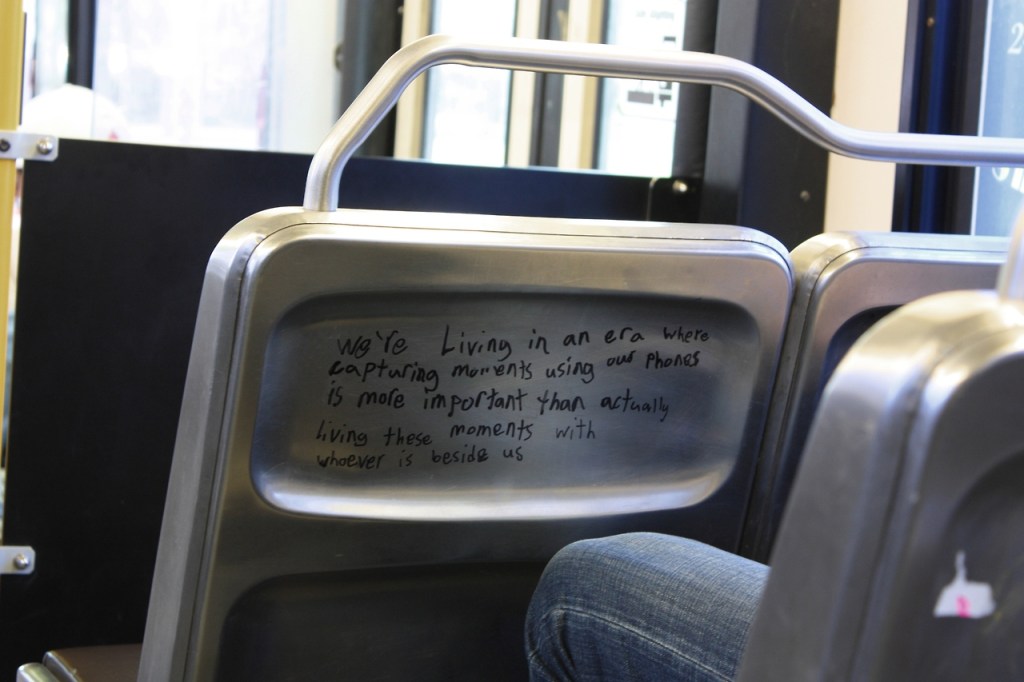 We're Living in an era where
capturing moments using our phones
is more important than actually
living these moments with
whoever is beside us